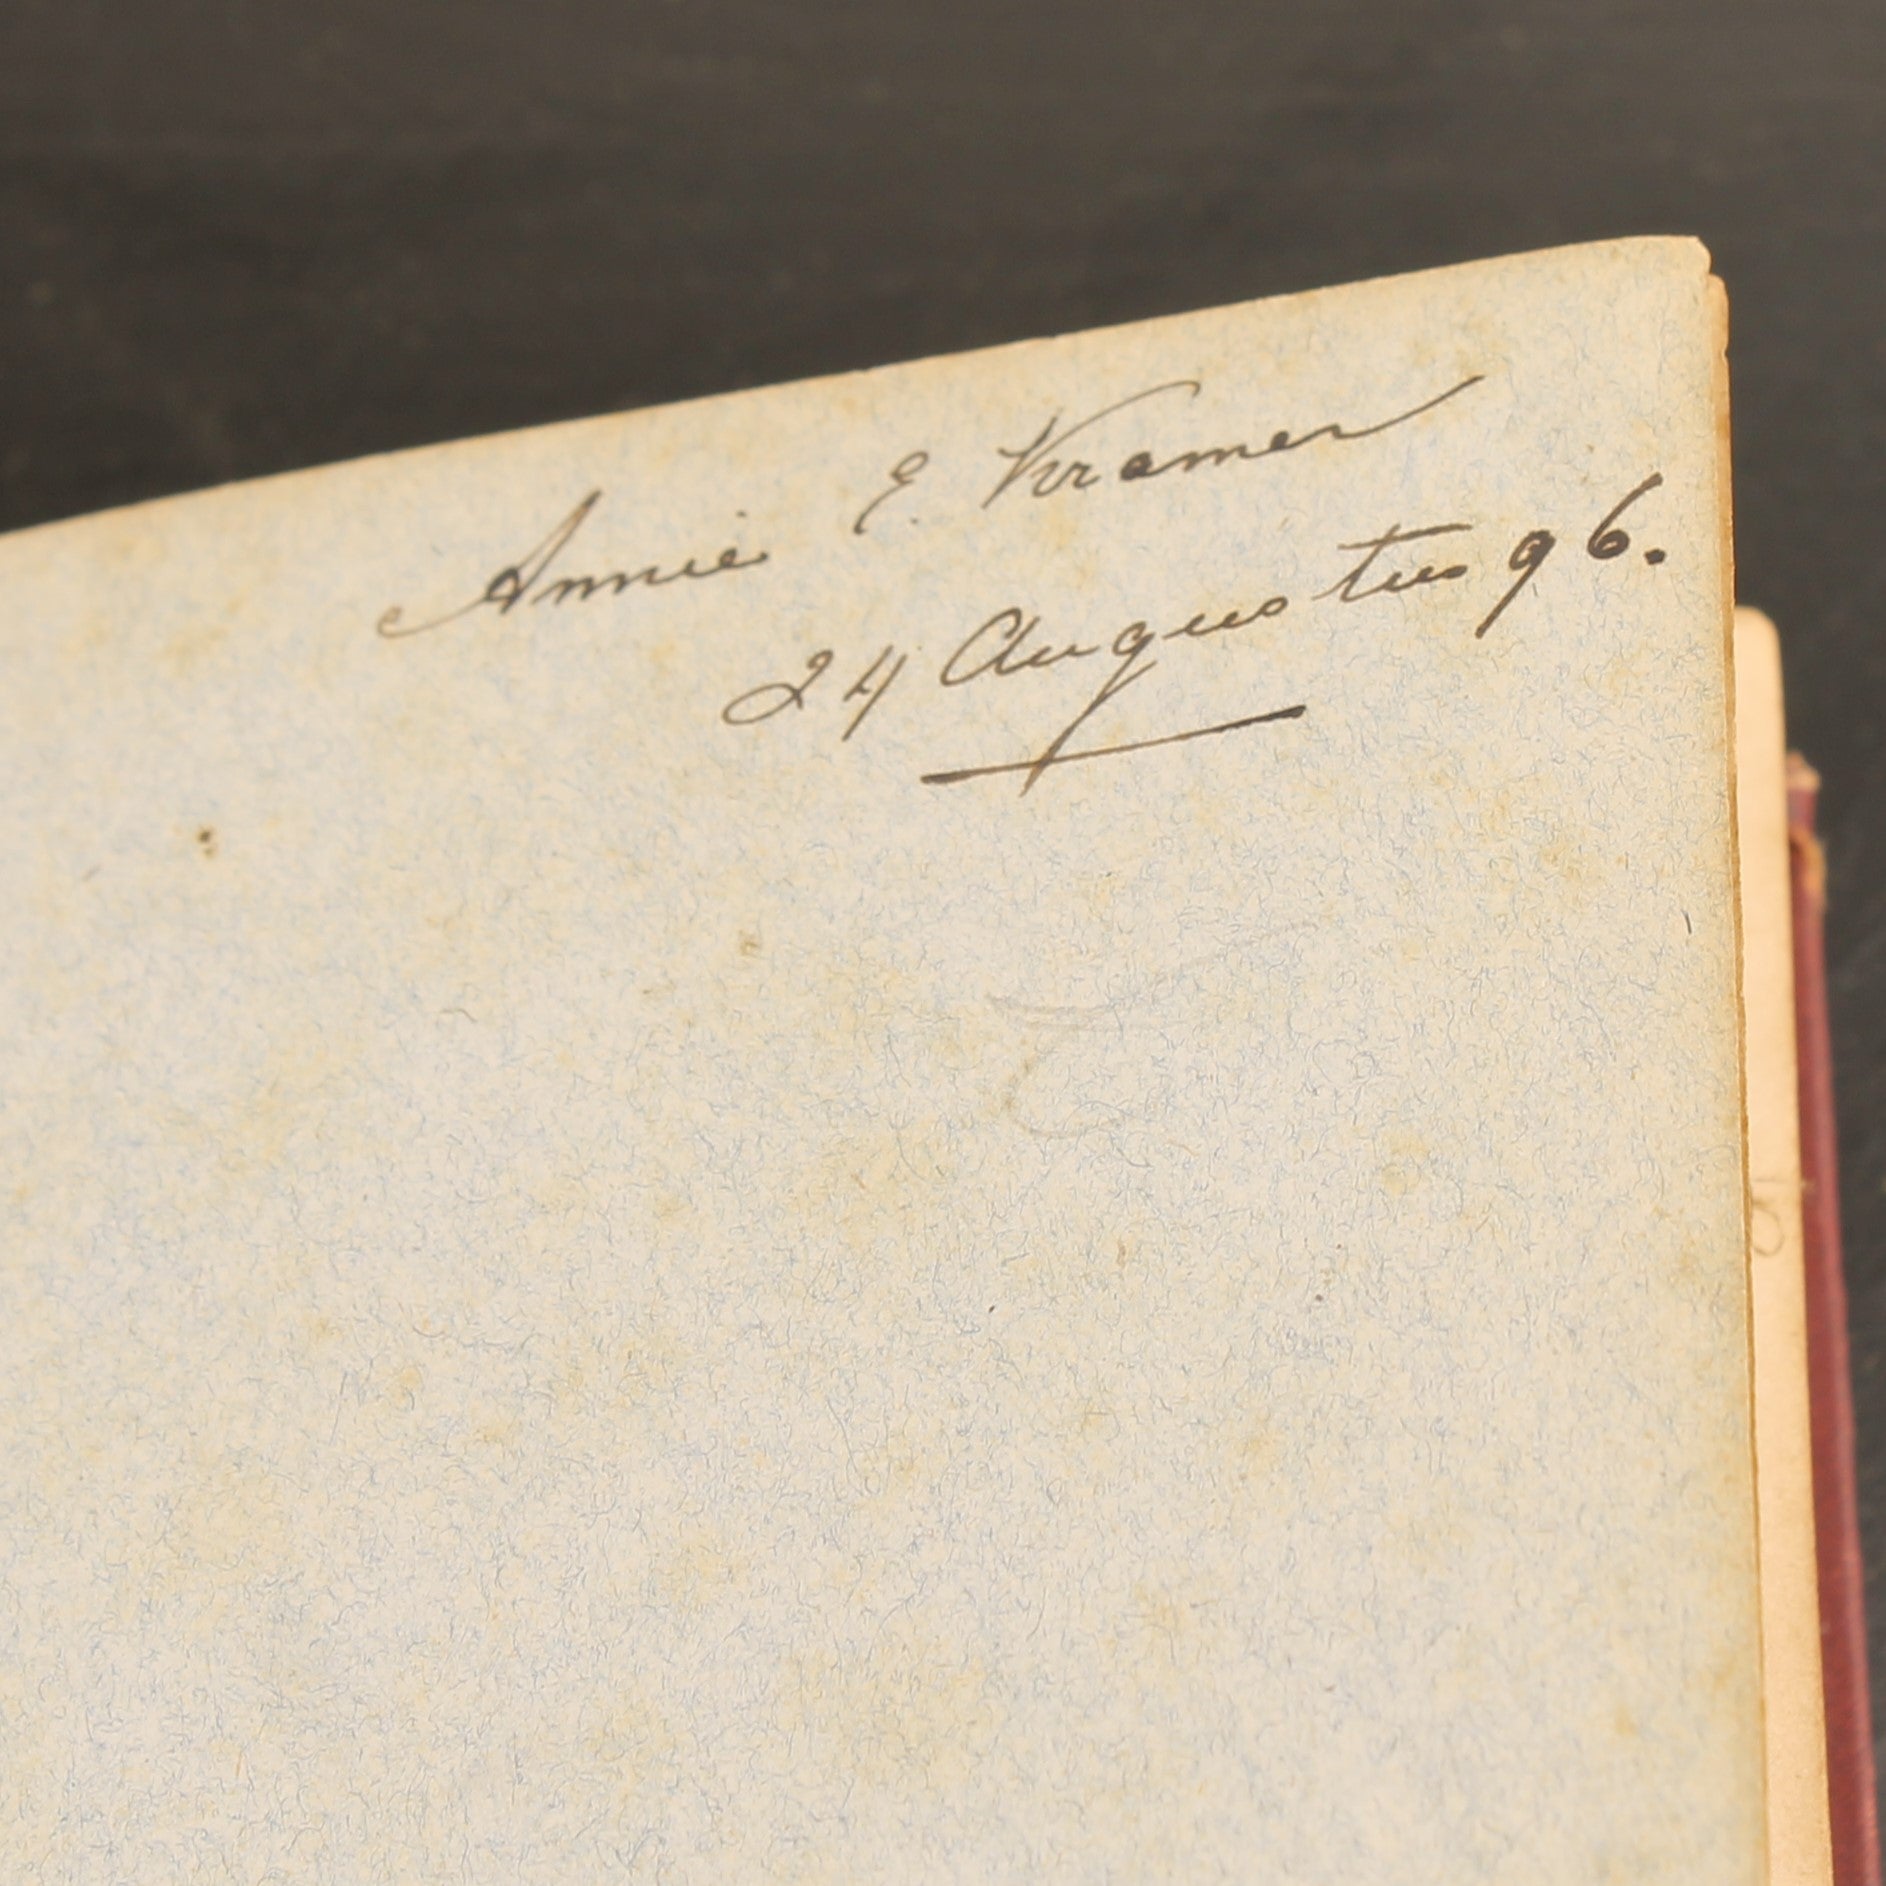 Annie E. Kramer
24 Augustus 96.